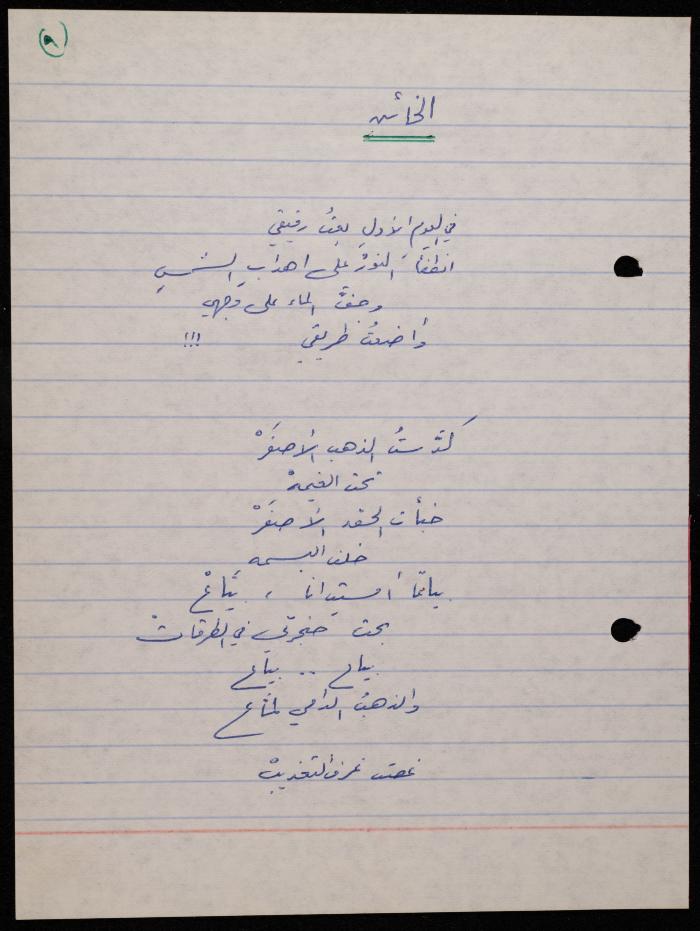 ٩
الخائن
في اليوم الأول بعتُ رفيقي
انطفأ النورُ على اهدابِ الشمسِ
وجفَّ الماء على وجهي
وأضعتُ طريقي !!!
كدَّستُ الذهب الأصفَرْ
تحت الغيمهْ
خبأت الحقد الأصفَرْ
خلف البسمه
بياعًا أمسيت انا ، بيَّاعْ
بحت حنجرتي في الطرقاتْ
بياع .. بياع
والذهبُ الدامي لمّاع
غصت غرف التعذيبْ